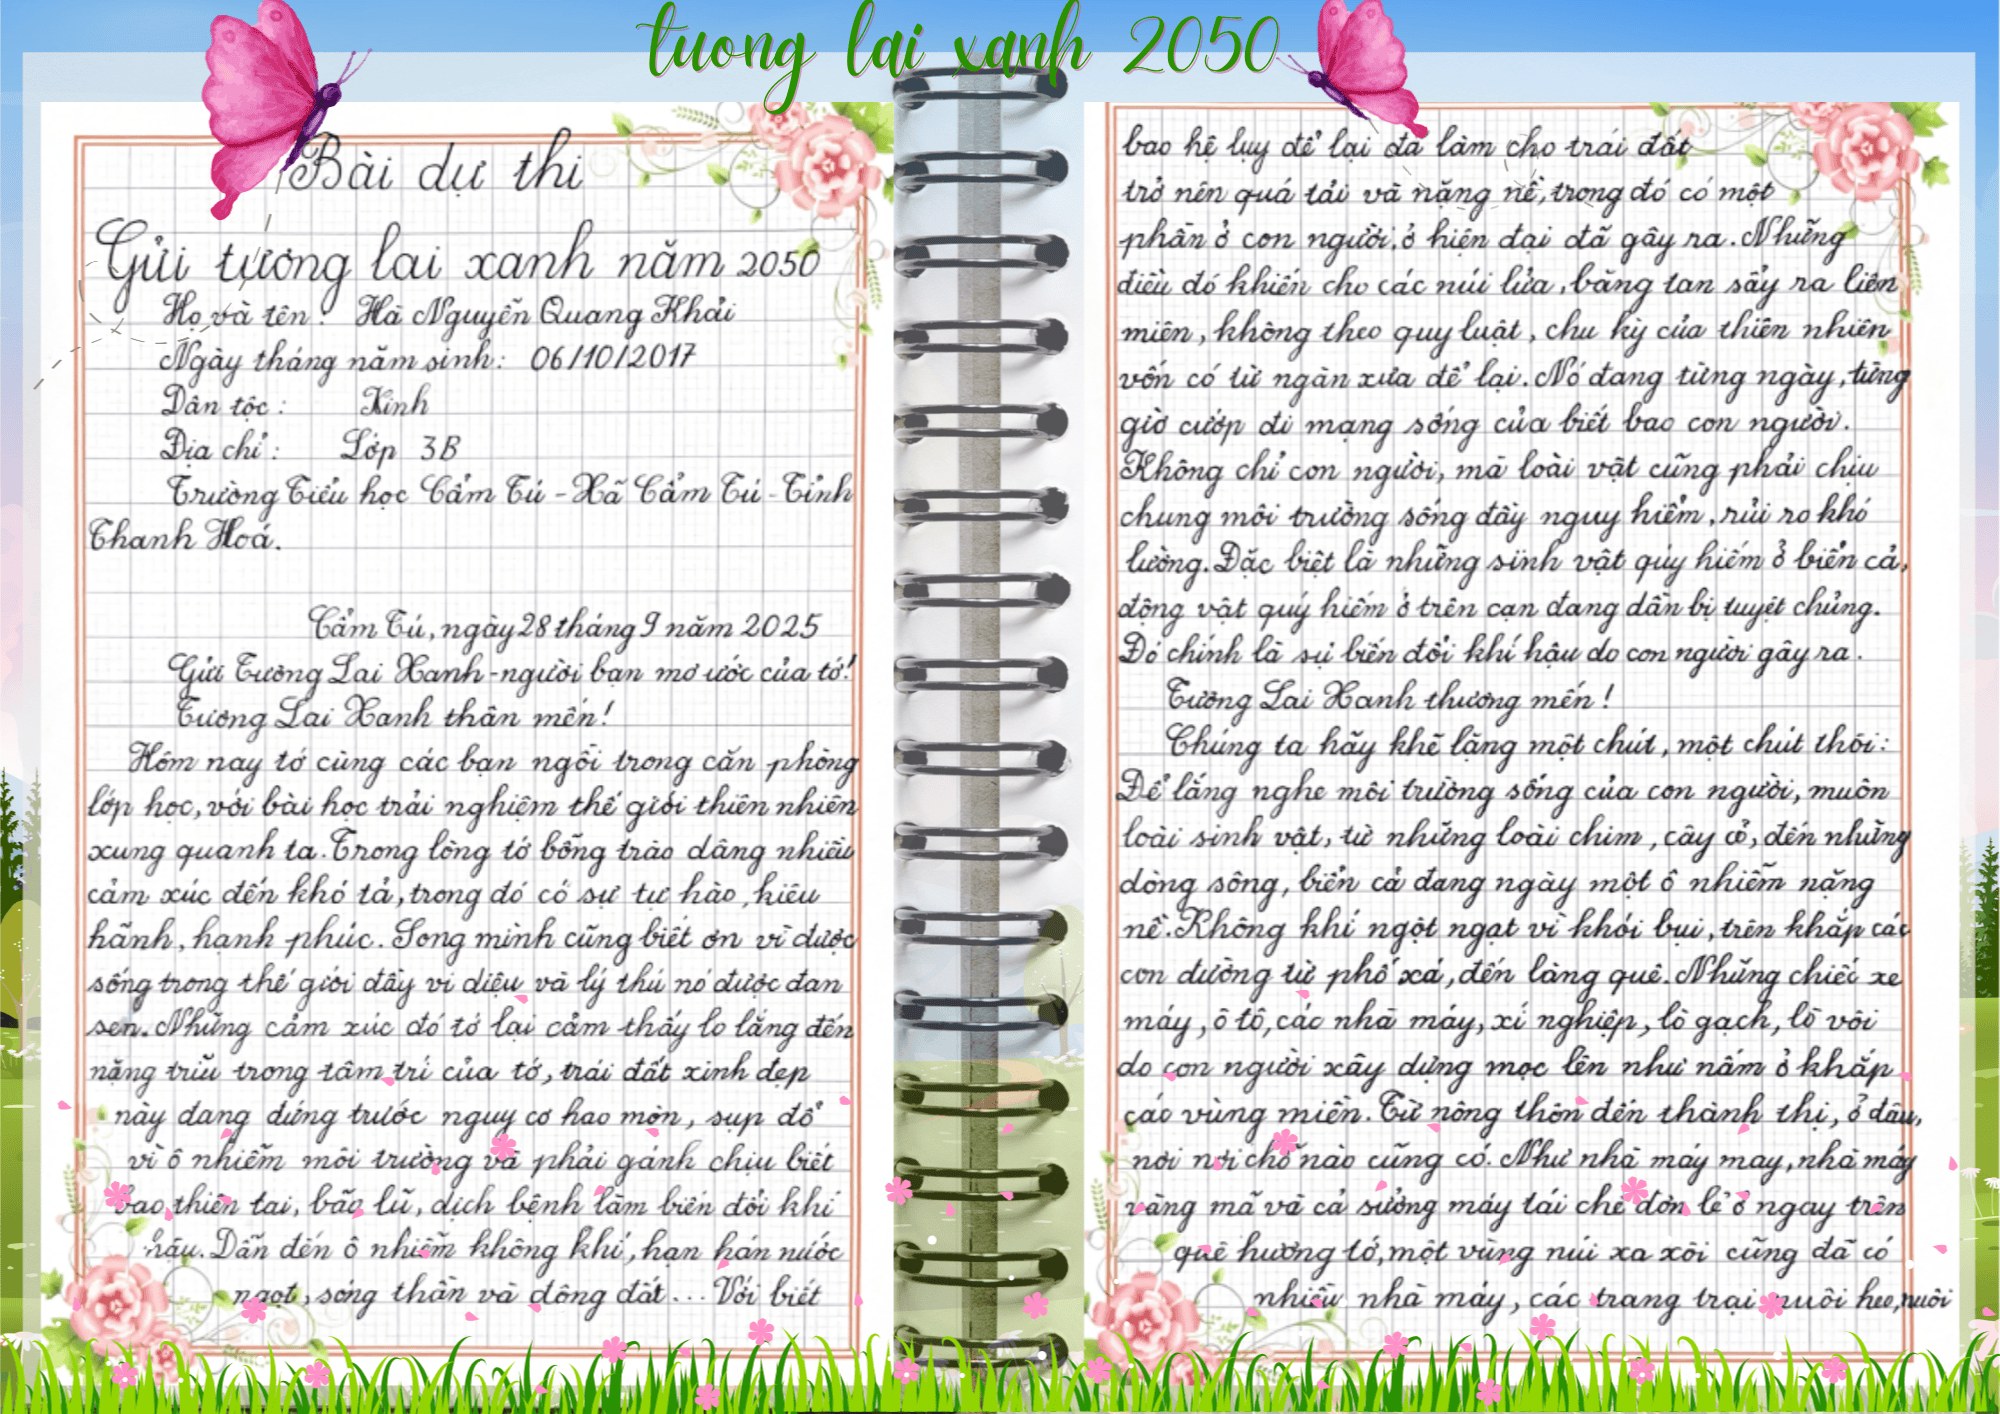 tuong lai xanh 2050
Bài dự thi
Gửi tương lai xanh năm 2050
Họ và tên: Hà Nguyễn Quang Khải
Ngày tháng năm sinh: 06/10/2017
Dân tộc: Kinh
Địa chỉ: Lớp 3B
Trường Tiểu học Cẩm Tú - Xã Cẩm Tú - Tỉnh
Thanh Hoá.
Cẩm Tú, ngày 28 tháng 9 năm 2025
Gửi Tương Lai Xanh - người bạn mơ ước của tớ!
Tương Lai Xanh thân mến!
Hôm nay tớ cùng các bạn ngồi trong căn phòng
lớp học, với bài học trải nghiệm thế giới thiên nhiên
xung quanh ta. Trong lòng tớ bỗng trào dâng nhiều
cảm xúc đến khó tả, trong đó có sự tự hào, kiêu
hãnh, hạnh phúc. Song mình cũng biết ơn vì được
sống trong thế giới đầy vi diệu và lý thú nó được đan
sen. Những cảm xúc đó tớ lại cảm thấy lo lắng đến
nặng trĩu trong tâm trí của tớ, trái đất xinh đẹp
này đang đứng trước nguy cơ hao mòn, sụp đổ
vì ô nhiễm môi trường và phải gánh chịu biết
bao thiên tai, bão lũ, dịch bệnh làm biến đổi khí
hậu. Dẫn đến ô nhiễm không khí, hạn hán nước
ngọt, sóng thần và động đất... Với biết
bao hệ lụy để lại đã làm cho trái đất
trở nên quá tải và nặng nề, trong đó có một
phần ở con người, ở hiện đại đã gây ra. Những
điều đó khiến cho các núi lửa, băng tan sảy ra liên
miên, không theo quy luật, chu kỳ của thiên nhiên
vốn có từ ngàn xưa để lại. Nó đang từng ngày, từng
giờ cướp đi mạng sống của biết bao con người.
Không chỉ con người, mà loài vật cũng phải chịu
chung môi trường sống đầy nguy hiểm, rủi ro khó
lường. Đặc biệt là những sinh vật qúy hiếm ở biển cả,
động vật quý hiếm ở trên cạn đang dần bị tuyệt chủng.
Đó chính là sự biến đổi khí hậu do con người gây ra.
Tương Lai Xanh thương mến!
Chúng ta hãy khẽ lặng một chút, một chút thôi:
Để lắng nghe môi trường sống của con người, muôn
loài sinh vật, từ những loài chim, cây cỏ, đến những
dòng sông, biển cả đang ngày một ô nhiễm nặng
nề. Không khí ngột ngạt vì khói bụi, trên khắp các
con đường từ phố xá, đến làng quê. Những chiếc xe
máy, ô tô, các nhà máy, xí nghiệp, lò gạch, lò vôi
do con người xây dựng mọc lên như nấm ở khắp
các vùng miền. Từ nông thôn đến thành thị, ở đâu,
nơi nơi chỗ nào cũng có. Như nhà máy may, nhà máy
vàng mã và cả sưởng máy tái chế đơn lẻ ở ngay trên
quê hương tớ, một vùng núi xa xôi cũng đã có
nhiều nhà máy, các trang trại nuôi heo, nuôi